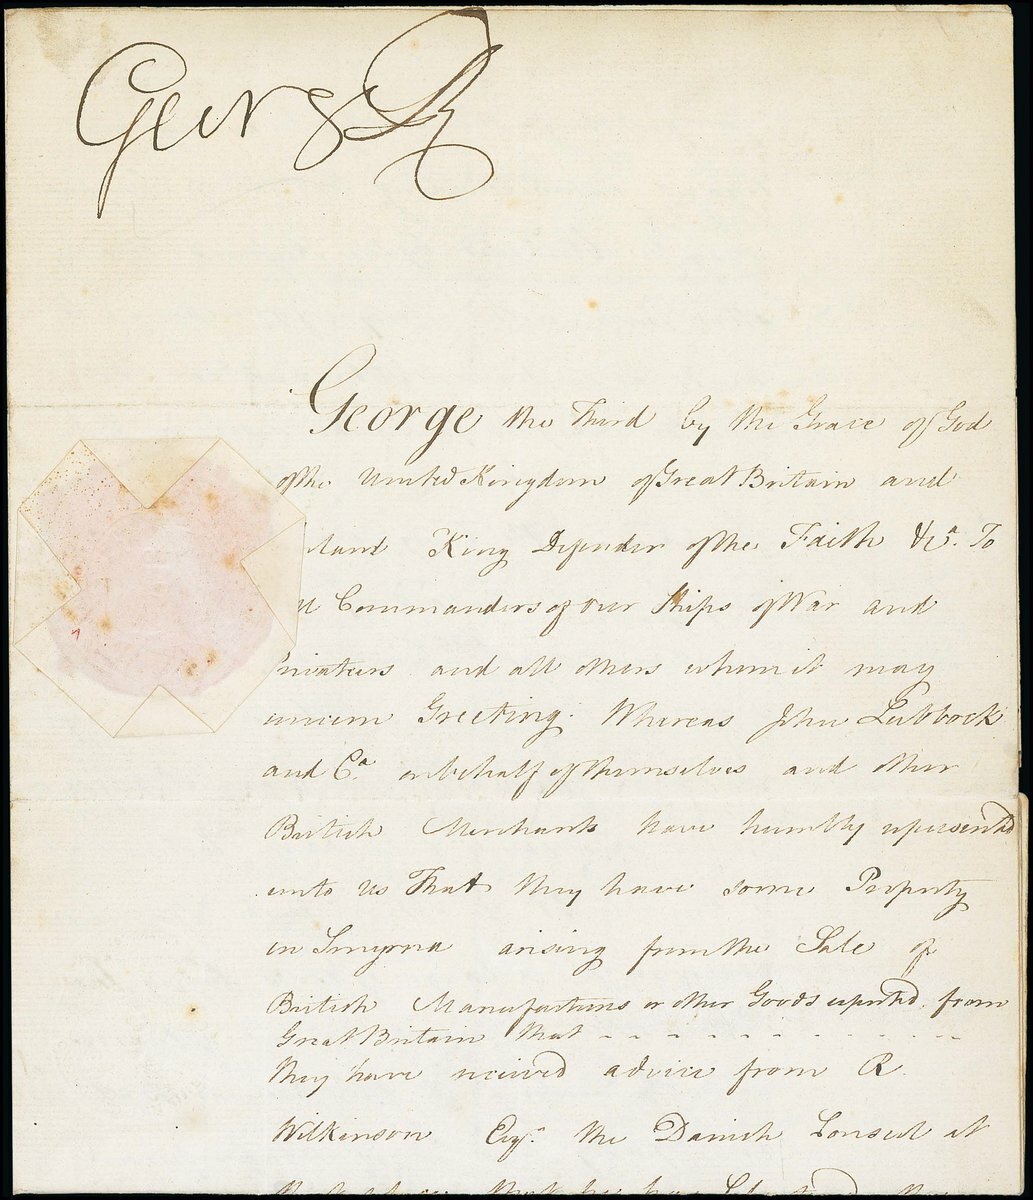 George R
George the Third by the Grace of God
of the United Kingdom of Great Britain and
land King Defender of the Faith &ca. To
Commanders of our Ships of War and
rivateers and all others whom it may
concern Greeting. Whereas John Lubbock
and Co. on behalf of themselves and other
British Merchants have humbly represented
unto us That they have some Property
in Smyrna arising from the Sale of
British Manufactures or other Goods exported from
Great Britain that - - - - - - - - - - - -
they have received advice from R.
Wilkinson Esqr. the Danish Consul at